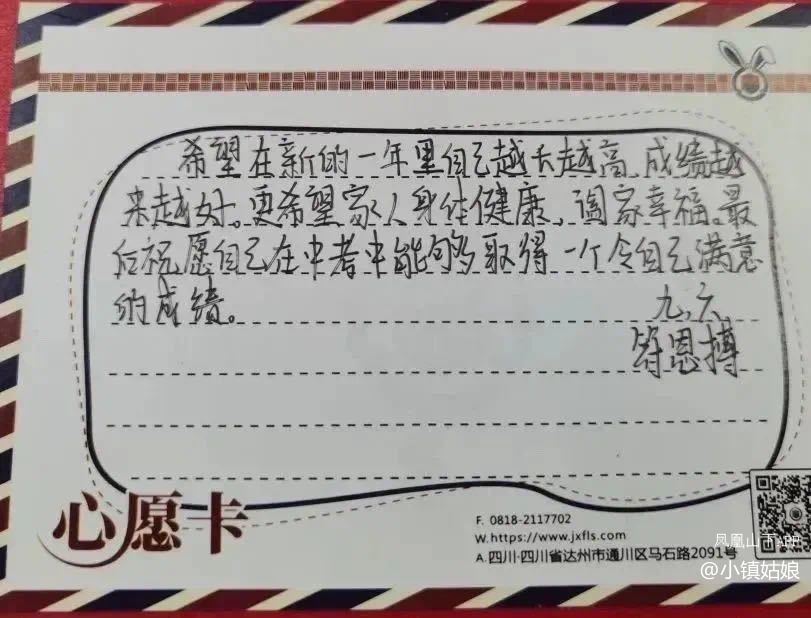 希望在新的一年里自己越长越高,成绩越
来越好。更希望家人身体健康,阖家幸福。最
后祝愿自己在中考中能够取得一个令自己满意
的成绩。
九.六
符恩搏
心愿卡
F. 0818-2117702
W.https://www.jxfls.com
A.四川·四川省达州市通川区马石路2091号
凤凰山下APP
@小镇姑娘